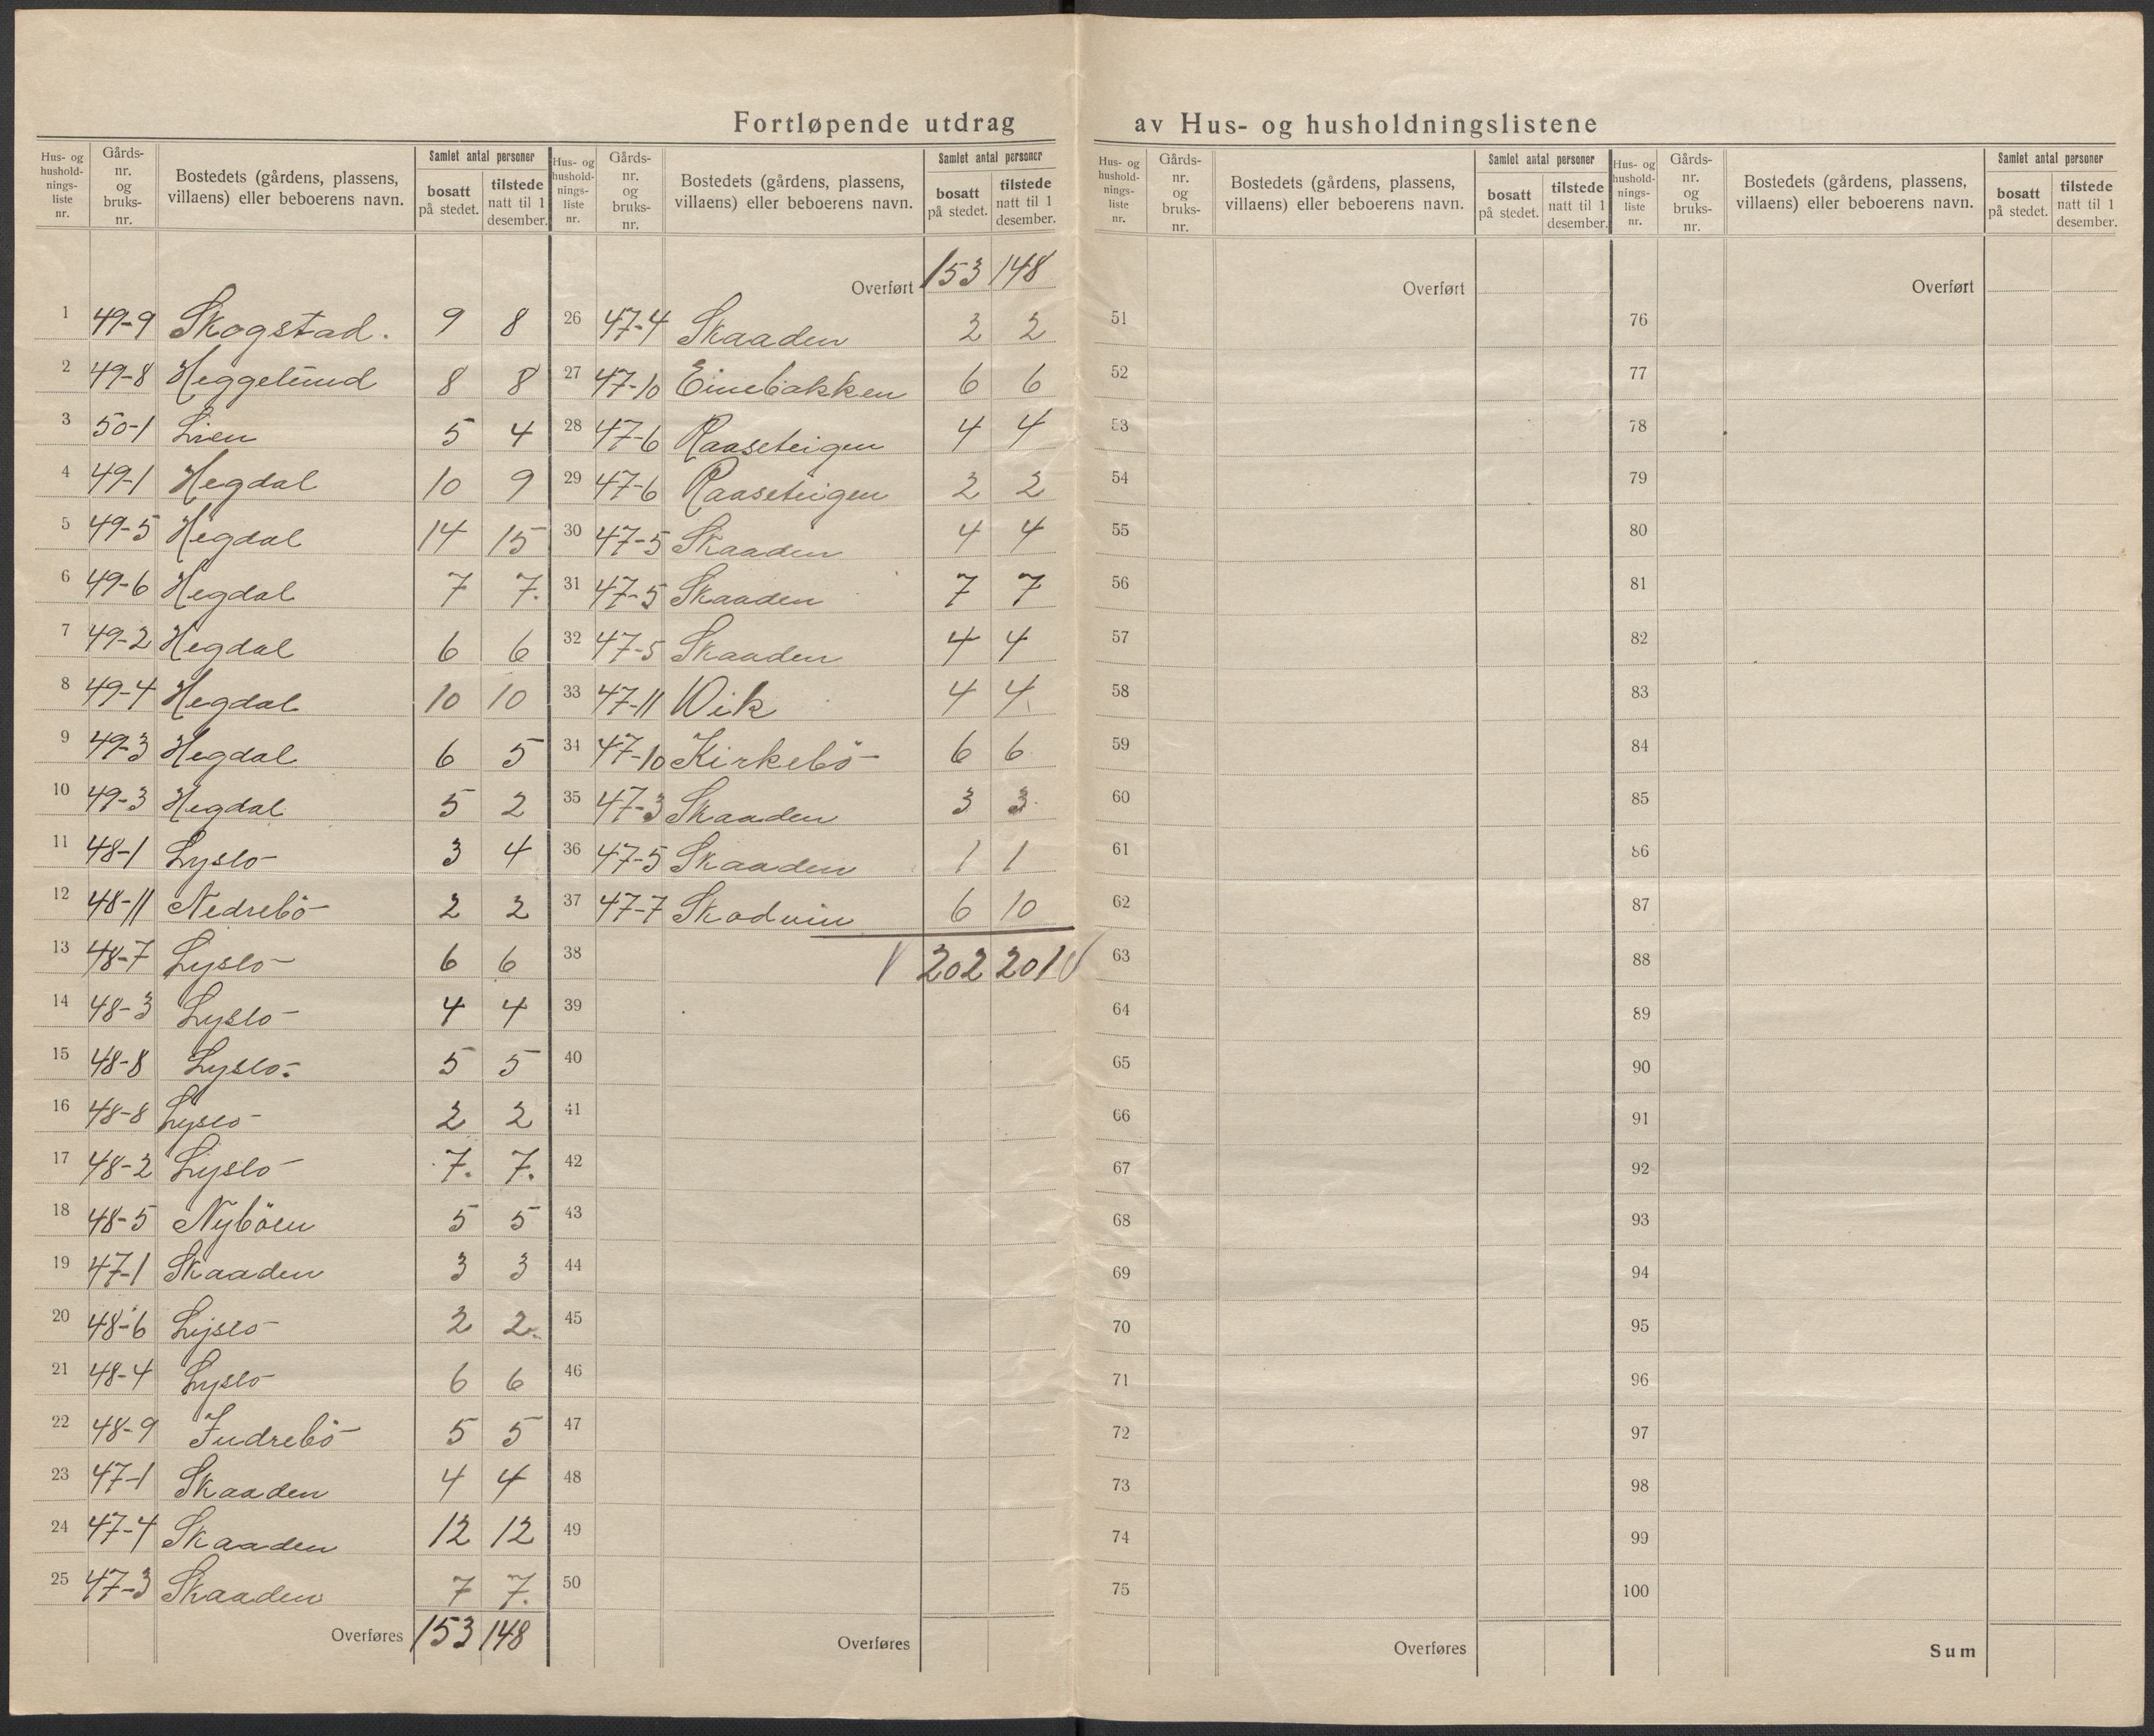 Fortløpende utdrag av Hus- og husholdningslistene
Hus- og husholdnings-liste nr. Gårds-nr. og bruks-nr. Bostedets (gårdens, plassens, villaens) eller beboerens navn. Samlet antal personer bosatt på stedet. tilstede natt til 1 desember.
1 49-9 Skogstad. 9 8
2 49-8 Heggelund 8 8
3 50-1 Lien 5 4
4 49-1 Hegdal 10 9
5 49-5 Hegdal 14 15
6 49-6 Hegdal 7 7.
7 49-2 Hegdal 6 6
8 49-4 Hegdal 10 10
9 49-3 Hegdal 6 5
10 49-3 Hegdal 5 2
11 48-1 Lyslo 3 4
12 48-11 Nedrebö 2 2
13 48-7 Lyslo 6 6
14 48-3 Lyslo 4 4
15 48-8 Lyslo. 5 5
16 48-8 Lyslo 2 2
17 48-2 Lyslo 7. 7.
18 48-5 Nyböen 5 5
19 47-1 Skaaden 3 3
20 48-6 Lyslo 2 2.
21 48-4 Lyslo 6 6
22 48-9 Indrebö 5 5
23 47-1 Skaaden 4 4
24 47-4 Skaaden 12 12
25 47-3 Skaaden 7 7.
Overføres 153 148
Hus- og husholdnings-liste nr. Gårds-nr. og bruks-nr. Bostedets (gårdens, plassens, villaens) eller beboerens navn. Samlet antal personer bosatt på stedet. tilstede natt til 1 desember.
Overført 153 148
26 47-4 Skaaden 2 2
27 47-10 Einebakken 6 6
28 47-6 Raaseteigen 4 4
29 47-6 Raaseteigen 2 2
30 47-5 Skaaden 4 4
31 47-5 Skaaden 7 7
32 47-5 Skaaden 4 4
33 47-11 Vik 4 4
34 47-10 Kirkebö 6 6
35 47-3 Skaaden 3 3
36 47-5 Skaaden 1 1
37 47-7 Skadvin 6 10
38 202 201
39
40
41
42
43
44
45
46
47
48
49
50
Overføres
Hus- og husholdnings-liste nr. Gårds-nr. og bruks-nr. Bostedets (gårdens, plassens, villaens) eller beboerens navn. Samlet antal personer bosatt på stedet. tilstede natt til 1 desember.
Overført
51
52
53
54
55
56
57
58
59
60
61
62
63
64
65
66
67
68
69
70
71
72
73
74
75
Overføres
Hus- og husholdnings-liste nr. Gårds-nr. og bruks-nr. Bostedets (gårdens, plassens, villaens) eller beboerens navn. Samlet antal personer bosatt på stedet. tilstede natt til 1 desember.
Overført
76
77
78
79
80
81
82
83
84
85
86
87
88
89
90
91
92
93
94
95
96
97
98
99
100
Sum